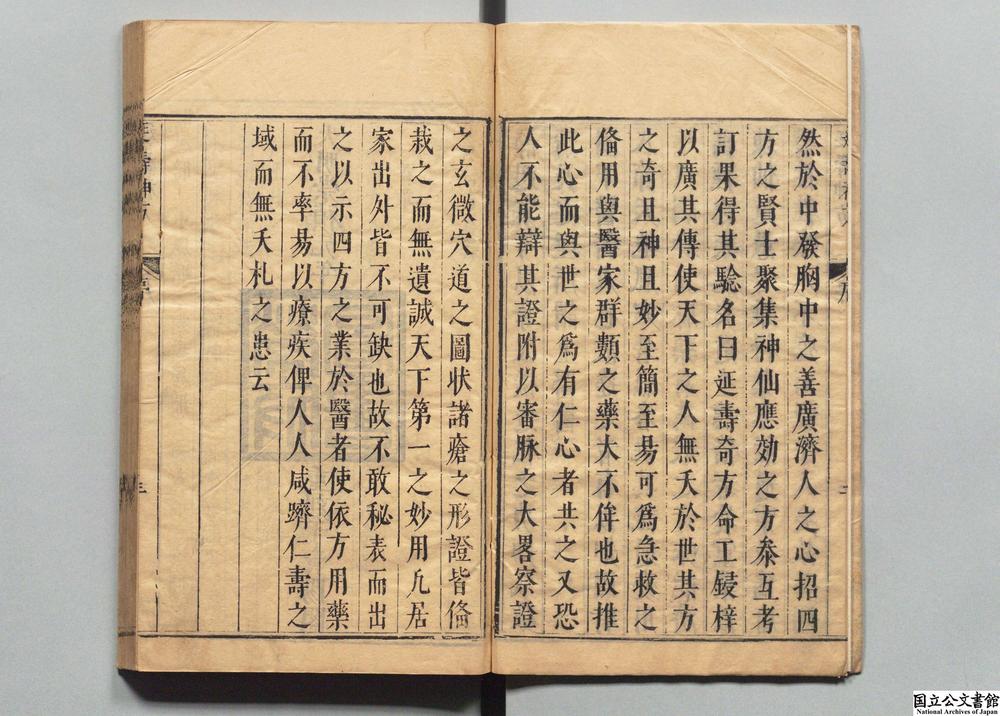 然於中發胸中之善廣濟人之心招四
方之賢士聚集神仙應効之方叅互考
訂果得其驗名曰延壽奇方命工鋟梓
以廣其傳使天下之人無夭於世其方
之奇且神且妙至簡至易可爲急救之
俻用與醫家群數之藥大不侔也故推
此心而與世之爲有仁心者共之又恐
人不能辯其證附以審脉之大畧察證
之玄微穴道之圖狀諸瘡之形證皆俻
栽之而無遺誠天下第一之妙用凢居
家出外皆不可缺也故不敢秘表而出
之以示四方之業於醫者使依方用藥
而不率易以療疾俾人人咸躋仁壽之
域而無夭札之患云
延壽神方
序
三
国立公文書館
National Archives of Japan